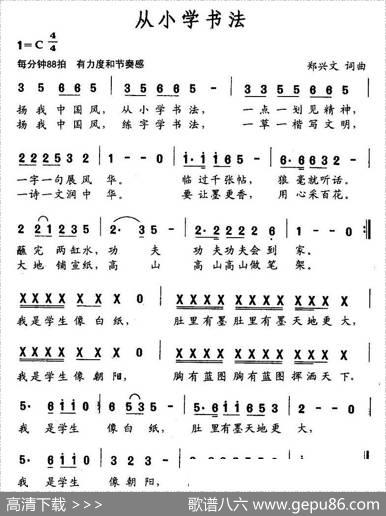 从小学书法
1=C 4/4
每分钟88拍 有力度和节奏感 郑兴文 词曲
3 5 6 6 5 3 5 6 6 5 3 3 3 5 6 6 5
扬我中国风, 从小学书法, 一点一划见精神,
扬我中国风, 练字学书法, 一草一楷写文明,
2 2 2 5 3 2 1 - - 0 i· i i 6 5 - 6· 6 6 5 3 2
一字一句展风华。 临过千张帖, 狼毫就听话。
一诗一文润中华。 要让墨更香, 用心采百花。
2 2 1 2 3 5 2· 3 5 - 2· 2 2 2 6 1 - - 0
蘸完两缸水,功夫 功夫功夫会到家。
大地铺宣纸,高山 高山高山做笔架。
X X X X X X X 0 X X X X X X X X X X X 0
我是学生像白纸, 肚里有墨肚里有墨天地更大,
X X X X X X X 0 X X X X X X X X X X X 0
我是学生像朝阳, 胸有蓝图胸有蓝图挥洒天下。
5· 6 i i 0 6 5 3 5 - 5· 6 i i 6 5 3 2 - - 0
我是学生 像白纸, 肚里有墨天地更大,
5· 6 i i 0 3 2 3 -
我是学生 像朝阳,
高清下载 >>> 歌谱八六 www.gepu86.com